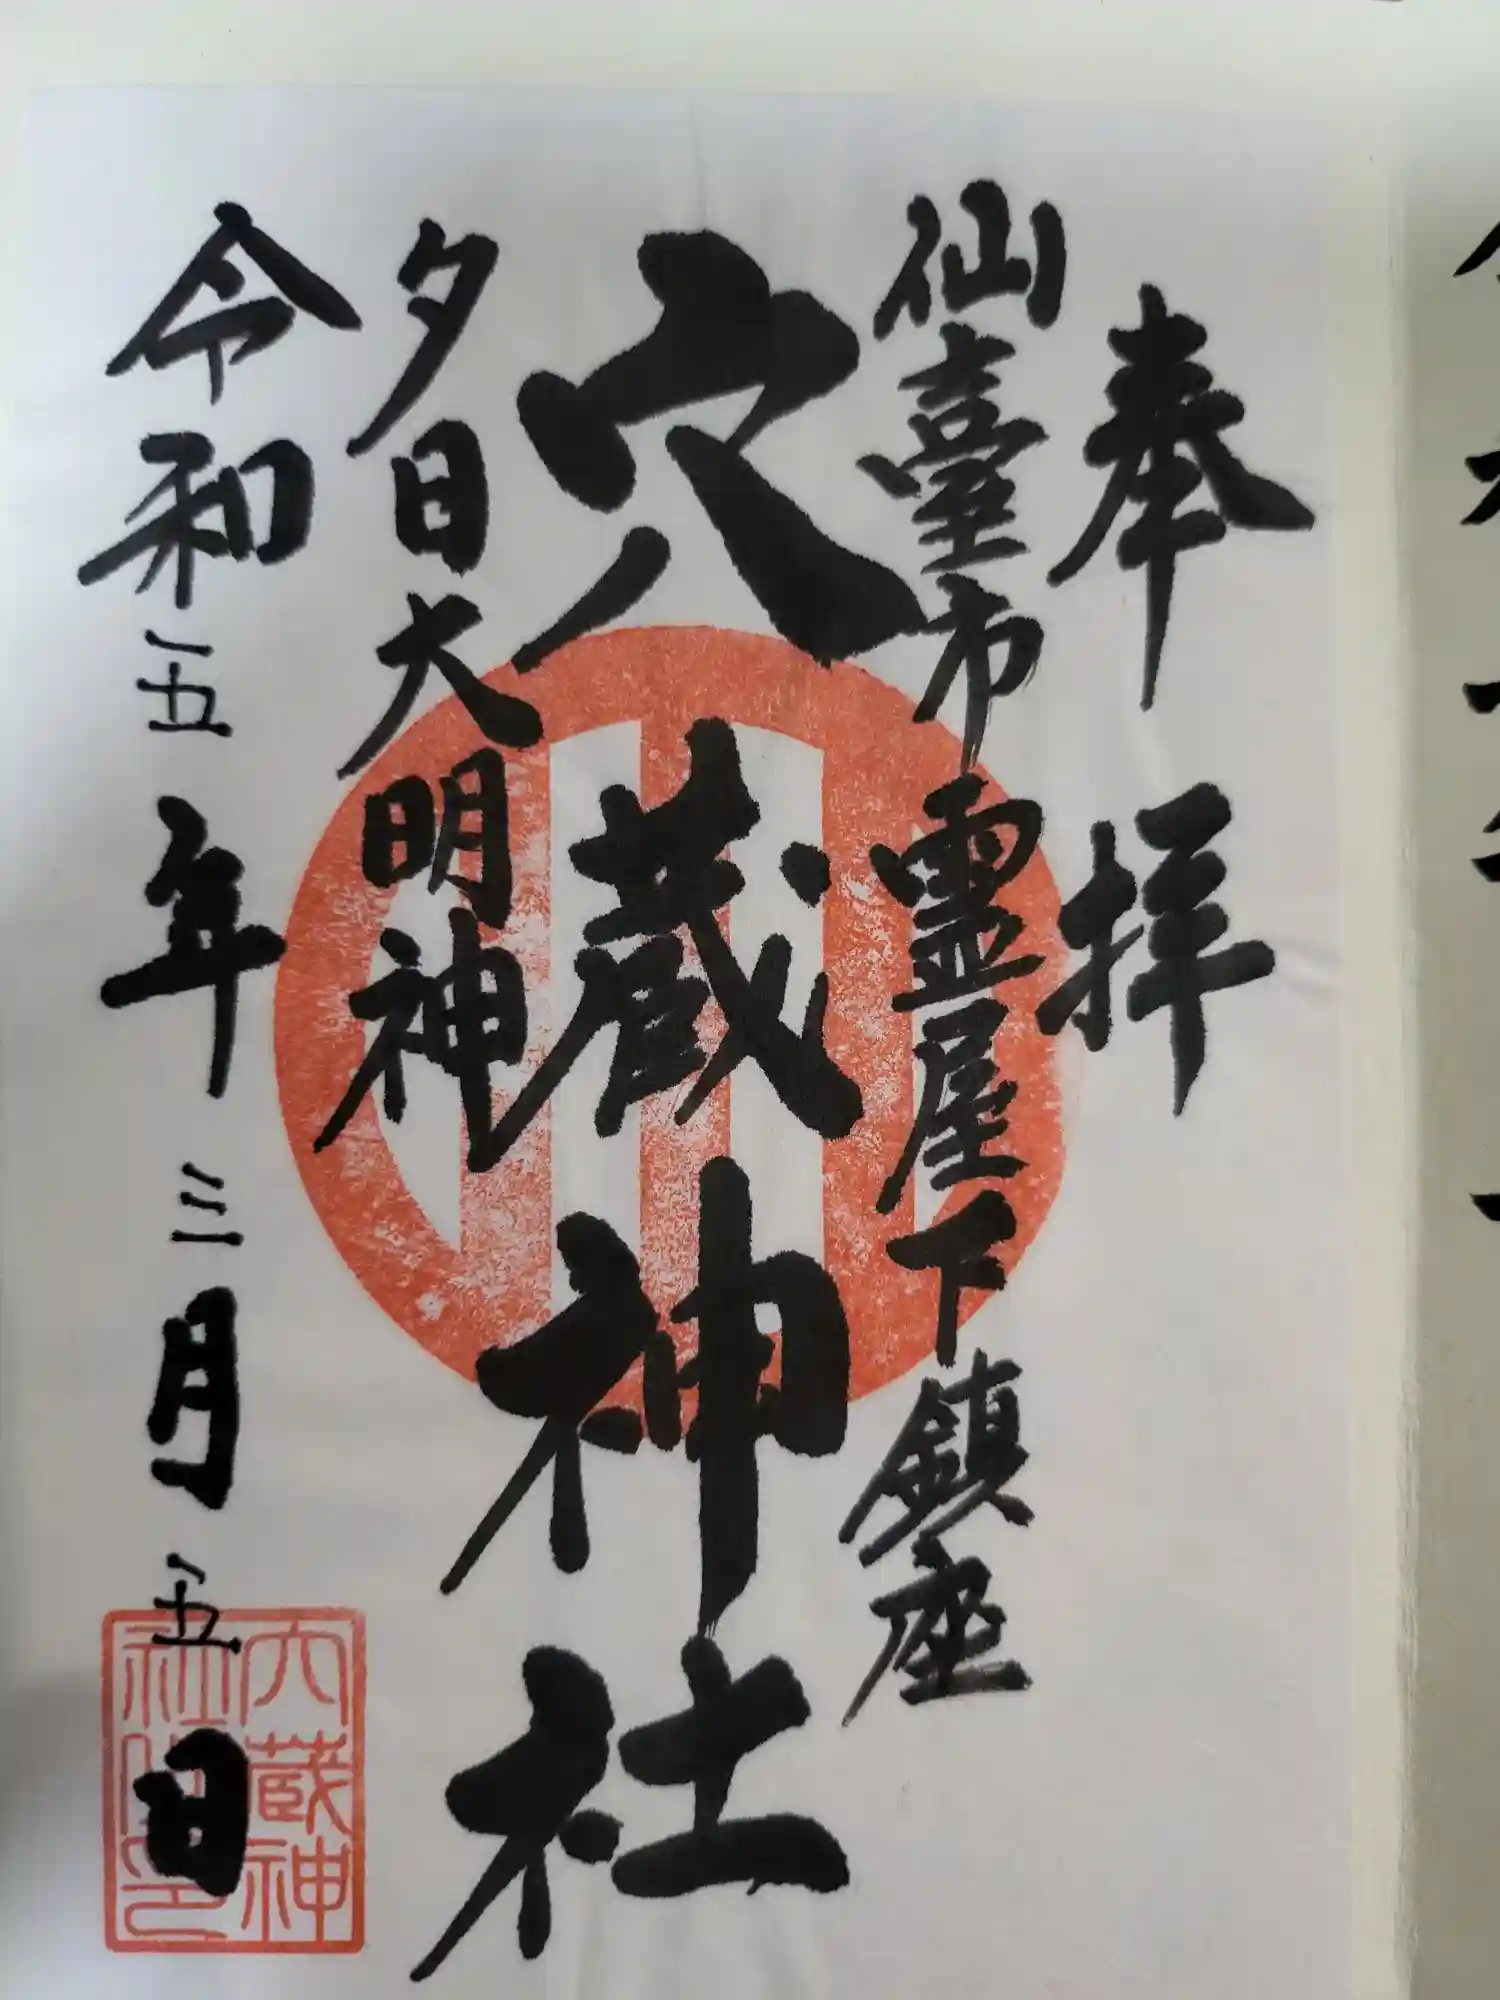 奉拝
仙臺市霊屋下鎮座
穴蔵神社
夕日大明神
令和五年三月五日
穴蔵神
社
印